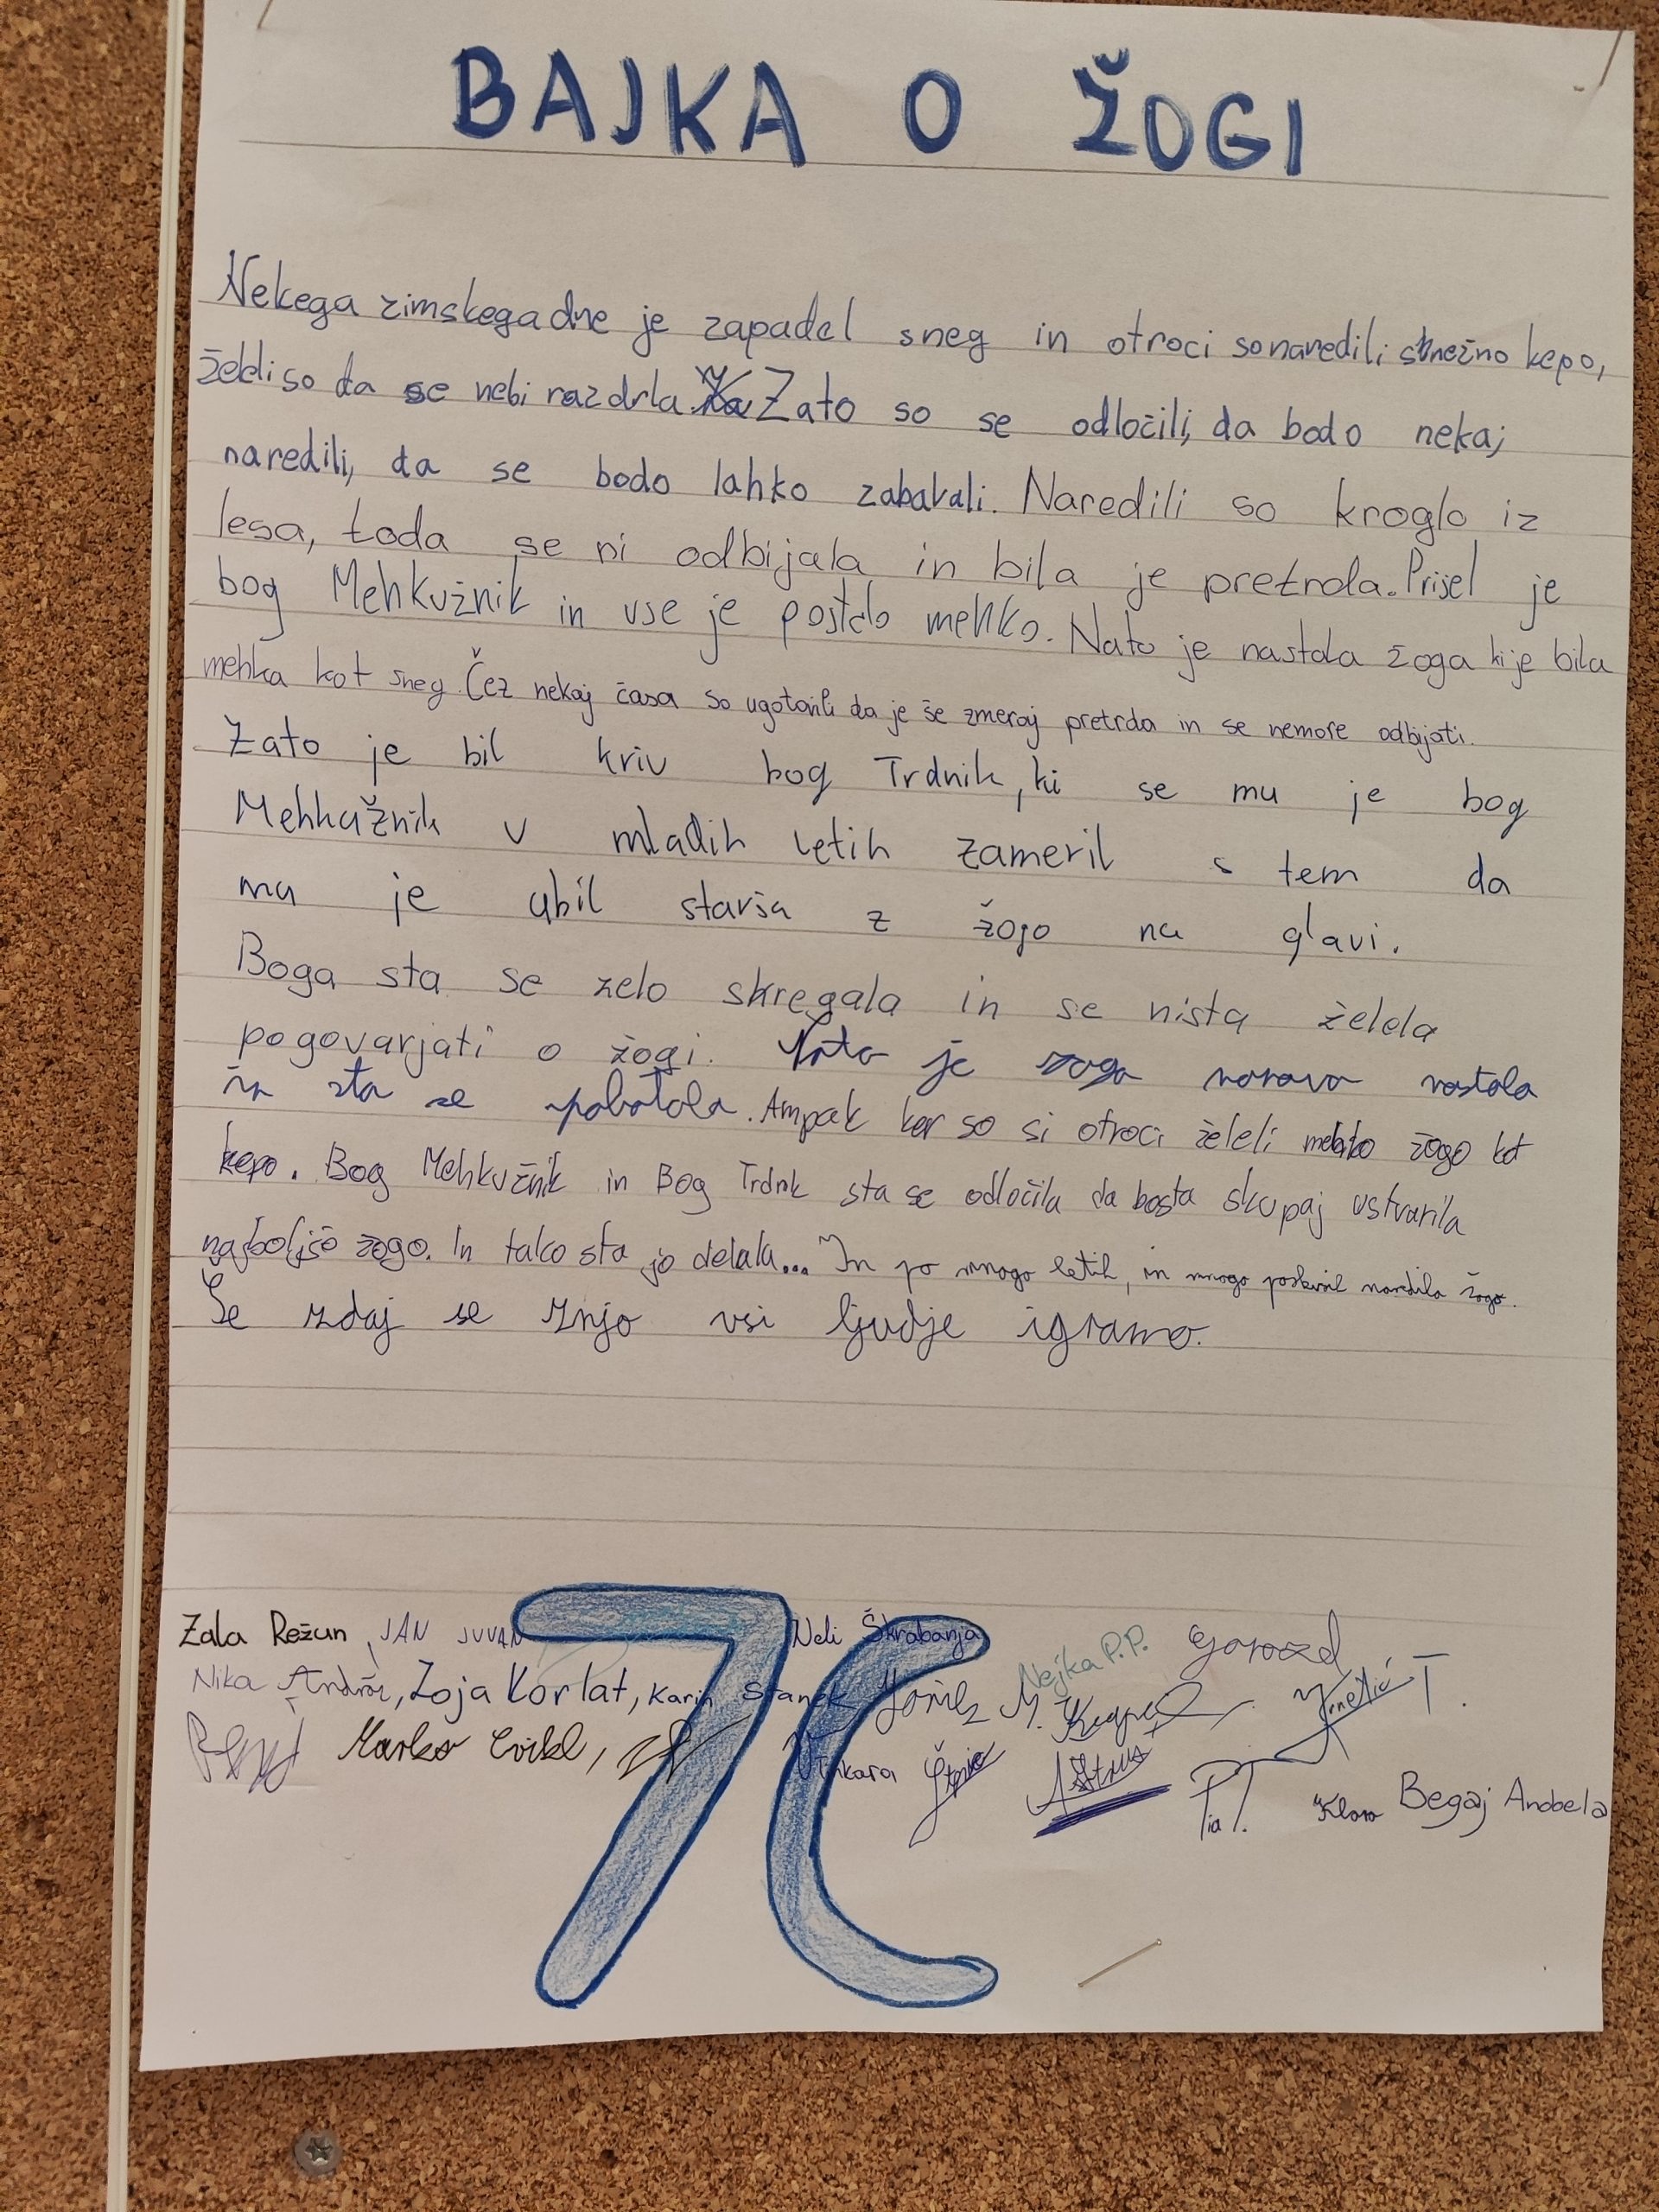 BAJKA O ŽOGI
Nekega zimskega dne je zapadel sneg in otroci so naredili snežno kepo,
želeli so da se nebi razdrla. Zato so se odločili, da bodo nekaj
naredili, da se bodo lahko zabavali. Naredili so kroglo iz
lesa, toda se ni odbijala in bila je pretrda. Prišel je
bog Mehkužnik in vse je postalo mehko. Nato je nastala žoga ki je bila
mehka kot sneg. Čez nekaj časa so ugotovili da je še zmeraj pretrda in se nemore odbijati.
Zato je bil kriv bog Trdnik, ki se mu je bog
Mehkužnik v mladih letih zameril s tem da
mu je ubil starša z žogo na glavi.
Boga sta se zelo skregala in se nista želela
pogovarjati o žogi. Nato je žoga narava nastala
in sta se pobotala. Ampak ker so si otroci želeli mehko žogo kot
kepo. Bog Mehkužnik in Bog Trdnik sta se odločila da bosta skupaj ustvarila
najboljšo žogo. In tako sta jo delala... In po mnogo letih, in mnogo poskusih naredila žogo.
Še zdaj se znjo vsi ljudje igramo.
Zala Režun, JAN JUVAN Neli Škrabanja Nejka P.P. Gorazd
Nika Zoja Korlat, Karin Stanek M. T.
Marko Cvikl, Vinkara Pia T. Klara Begaj Anabela